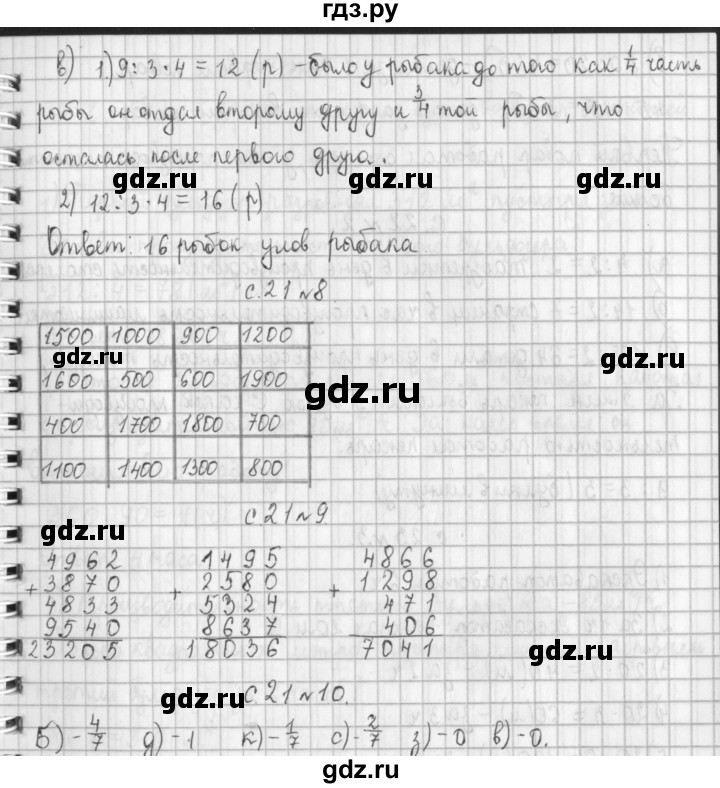 гдз.ру
в) 1) 9:3·4=12 (р) - было у рыбака до того как 1/4 часть
рыбы он отдал второму другу и 3/4 той рыбы, что
осталась после первого друга.
gdz.ru gdz.ru gdz.ru
2) 12:3·4=16 (р)
Ответ: 16 рыбок улов рыбака
с.21 №8
1500 1000 900 1200
gdz.ru gdz.ru
1600 500 600 1900
gdz.ru
400 1700 1800 700
1100 1400 1300 800
с.21 №9
gdz.ru
4962 1495 4866
+ 3870 + 2580 + 1298
4833 5324 471
9540 8637 406
23205 18036 7041
gdz.ru
gdz.ru с 21 №10.
Б) - 4/7 д) - 1 к) - 1/7 с) - 2/7 з) - 0 в) - 0.
gdz.ru